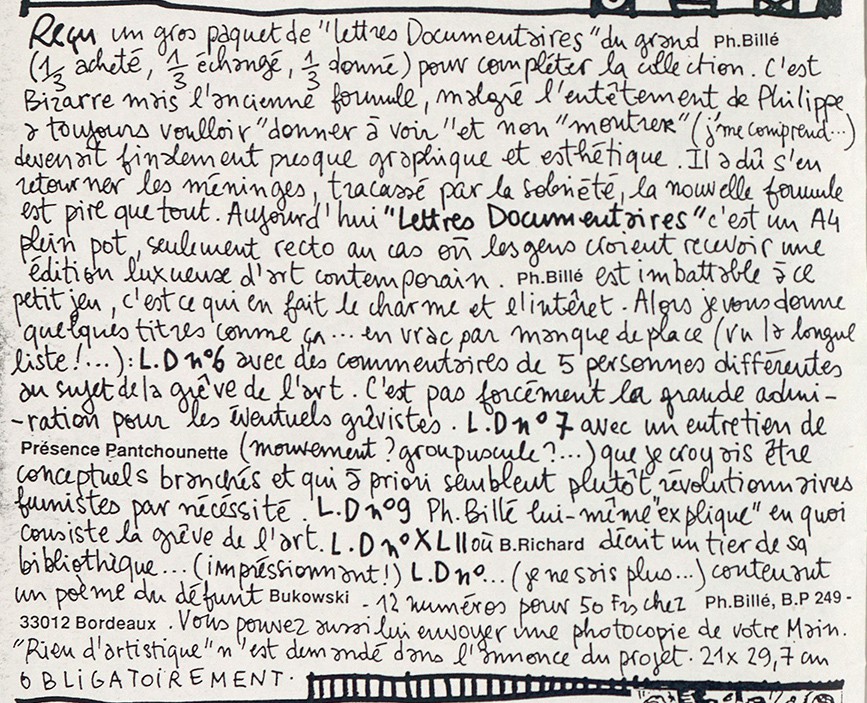 Reçu un gros paquet de "lettres Documentaires" du grand Ph.Billé
(1/3 acheté, 1/3 échangé, 1/3 donné) pour compléter la collection. C'est
Bizarre mais l'ancienne formule, malgré l'entêtement de Philippe
a toujours voulloir "donner à voir" et non "montrer" (j'me comprend...)
devenait finalement presque graphique et esthétique. Il a dû s'en
retourner les méninges, tracassé par la sobriété, la nouvelle formule
est pire que tout. Aujourd'hui "Lettres Documentaires" c'est un A4
plein pot, seulement recto au cas où les gens croient recevoir une
édition luxueuse d'art contemporain. Ph.Billé est imbattable à ce
petit jeu, c'est ce qui en fait le charme et l'intêret. Alors je vous donne
quelques titres comme ça... en vrac par manque de place (vu la longue
liste!...): L.D n°6 avec des commentaires de 5 personnes différentes
au sujet de la grêve de l'art. C'est pas forcément la grande admi-
-ration pour les éventuels grêvistes. L.D n°7 avec un entretien de
Présence Pantchounette (mouvement? groupuscule?...) que je croyais être
conceptuels branchés et qui à priori semblent plutôt révolutionnaires
fumistes par nécéssité. L.D n°9 Ph.Billé lui-même "explique" en quoi
consiste la grêve de l'art. L.D n°XLII où B.Richard décrit un tier de sa
bibliothèque... (impréssionnant!) L.D n°... (je ne sais plus...) contenant
un poème du défunt Bukowski - 12 numéros pour 50 Frs chez Ph.Billé, B.P 249 -
33012 Bordeaux. Vous pouvez aussi lui envoyer une photocopie de votre Main.
"Rien d'artistique" n'est demandé dans l'annonce du projet. 21x 29,7 cm
OBLIGATOIREMENT.